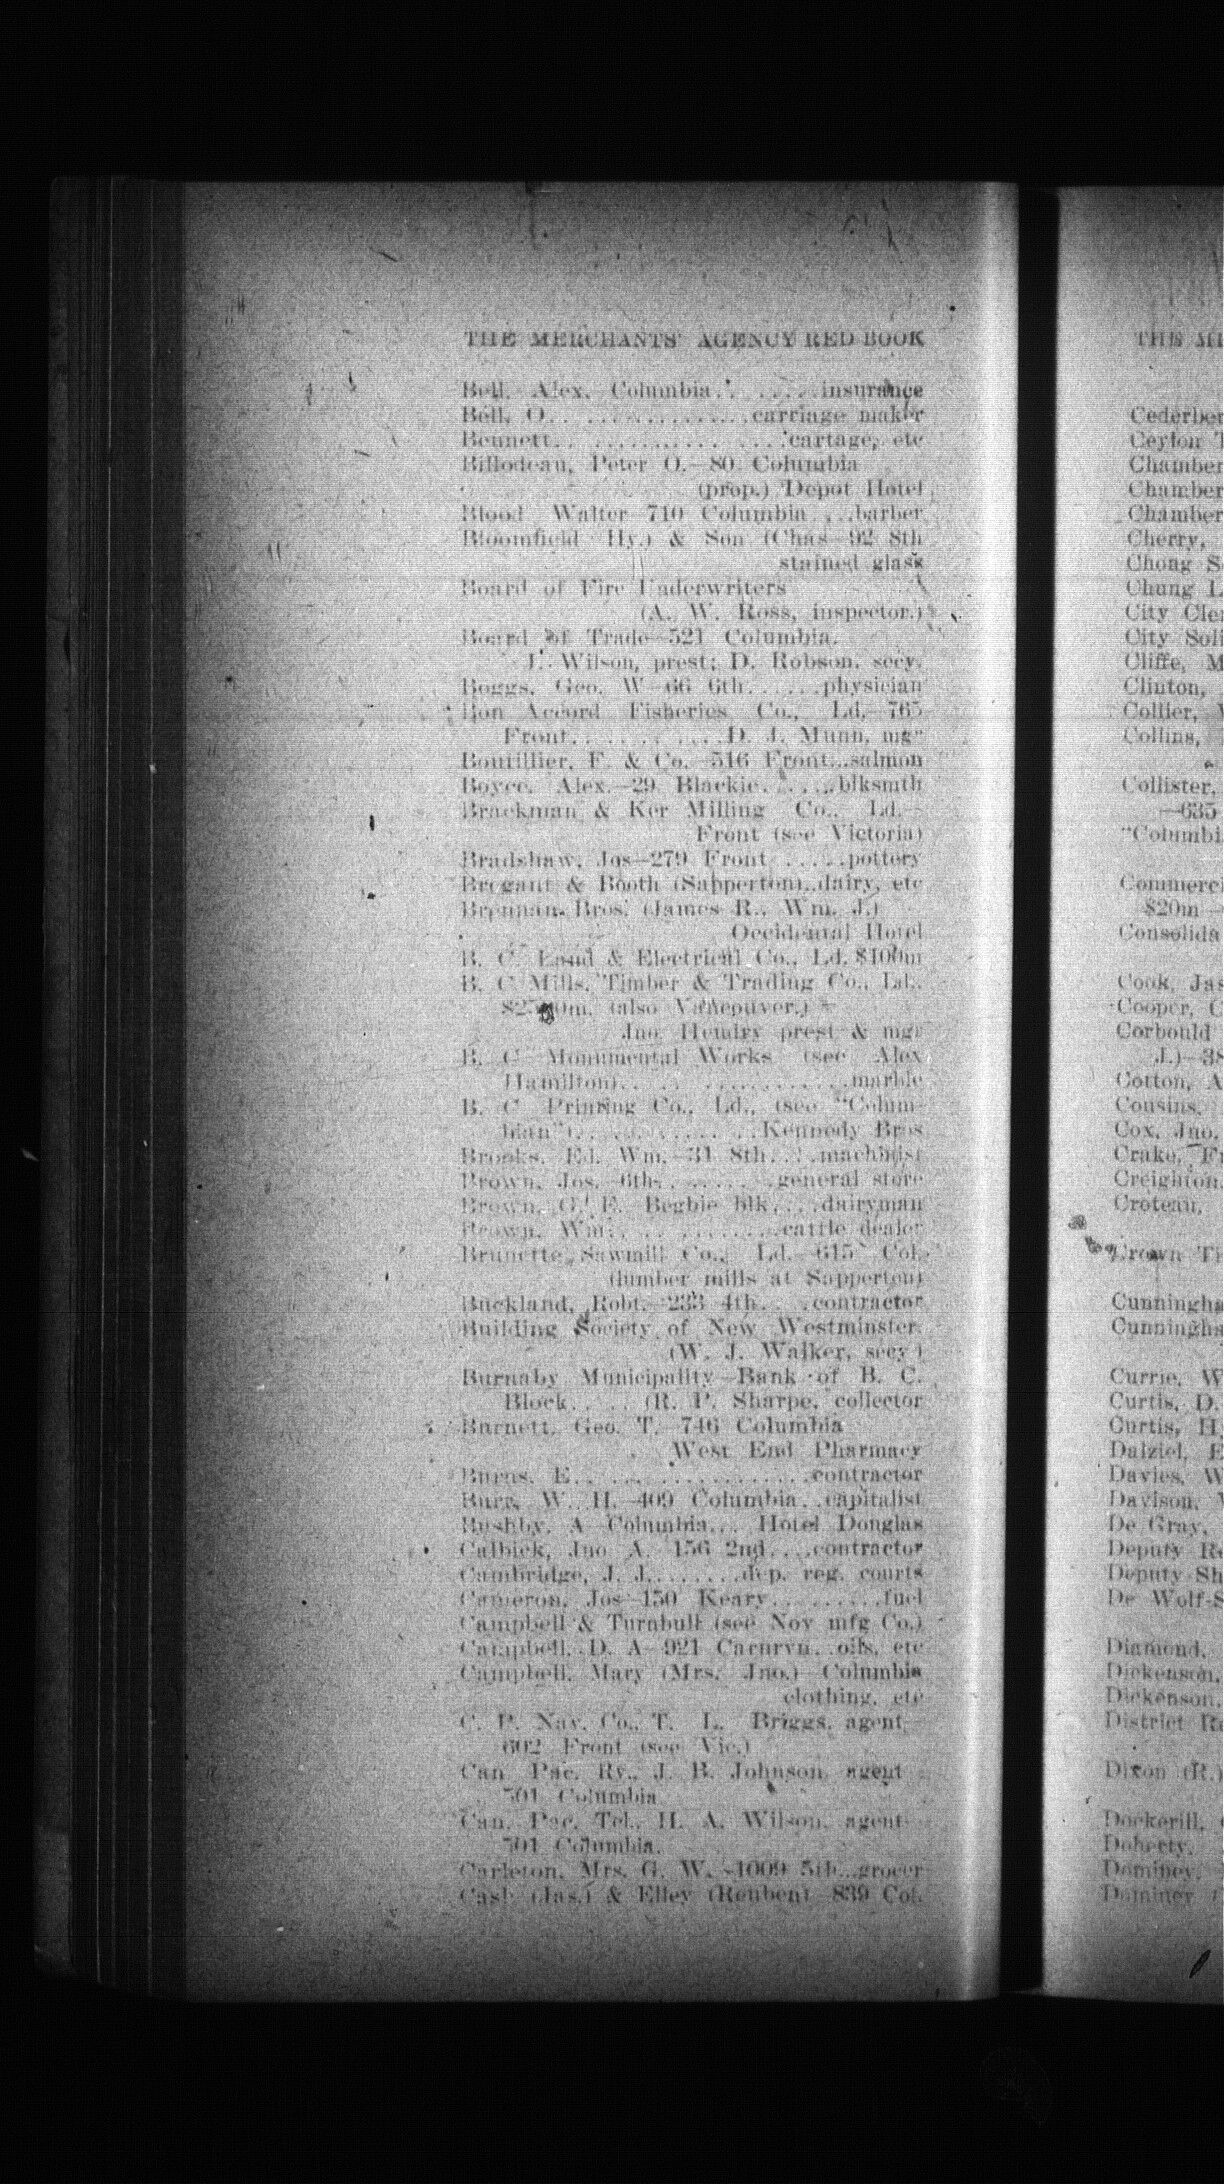 THE MERCHANTS' AGENCY RED BOOK
Bell, Alex, Columbia. ......insurance
Bell, O. ...............carriage maker
Bennett. ...............cartage, etc
Billodeau, Peter O.—80 Columbia
(prop.) Depot Hotel
Blood Walter 710 Columbia ...barber
Bloomfield Hy.) & Son (Chas—92 8th
stained glass
Board of Fire Underwriters
(A. W. Ross, inspector.)
Board of Trade—521 Columbia.
Wilson, prest; D. Robson, secy.
Boggs, Geo. W—66 6th......physician
Bon Accord Fisheries Co., Ld.—765
Front. ..........D. J. Munn, mgr
Boutillier, F. & Co.—516 Front...salmon
Boyce, Alex.—29 Blackie. .....blksmth
Brackman & Ker Milling Co., Ld.—
Front (see Victoria)
Bradshaw, Jos—279 Front ......pottery
Bregant & Booth (Sapperton)..dairy, etc
Brennan Bros. (James R., Wm. J.)
Occidental Hotel
B. C. Land & Electrical Co., Ld. $100m
B. C Mills, Timber & Trading Co., Ld.,
(also Vancouver.)
Jno. Hendry prest & mgr
B. C Monumental Works (see Alex
Hamilton). ..................marble
B. C Printing Co., Ld., (see "Colum-
bian"(. .............Kennedy Bros
Brooks, Ed. Wm.—31 8th. ...machinist
Brown, Jos. 6th. ........general store
Brown, G. F. Begbie blk. ...dairyman
Brown, Wm. .............cattle dealer
Brunette Sawmill Co., Ld.—615 Col.
(lumber mills at Sapperton)
Buckland, Robt.—233 4th. ...contractor
Building Society of New Westminster.
(W. J. Walker, secy)
Burnaby Municipality—Bank of B. C.
Block. ... (R. P. Sharpe, collector
Burnett, Geo. T. 746 Columbia
West End Pharmacy
Burns, E. ..................contractor
Burr, W. H.—409 Columbia..capitalist
Bushby, A Columbia... Hotel Douglas
Calbick, Jno A. 156 2nd. ...contractor
Cambridge, J. J. .......dep. reg. courts
Cameron, Jos—150 Keary. ........fuel
Campbell & Turnbull (see Nov mfg Co.)
Campbell, D. A—921 Carnrvn..oils, etc
Campbell, Mary (Mrs. Jno.) Columbia
clothing, etc
C. P. Nav. Co., T. L. Briggs, agent,—
602 Front (see Vic.)
Can Pac. Ry., J. B. Johnson, agent
501 Columbia
Can. Pac. Tel., H. A. Wilson, agent
501 Columbia.
Carleton, Mrs. G. W. -1009 5th...grocer
Cash (Jas.) & Elley (Reuben) 839 Col.
THE ME
Cederber
Ceylon T
Chamber
Chamber
Chamber
Cherry,
Chong S
Chung L
City Cle
City Soli
Cliffe, M
Clinton,
Collier,
Collins,
Collister,
—635
"Columbi
Commerci
$20m
Consolida
Cook, Jas
Cooper, C
Corbould
J.)—38
Cotton, A
Cousins,
Cox, Jno.
Crake, Fr
Creighton,
Croteau,
Crown Ti
Cunningha
Cunningha
Currie, W
Curtis, D.
Curtis, H
Dalziel, E
Davies, W
Davison,
De Gray,
Deputy Re
Deputy Sh
De Wolf-S
Diamond,
Dickenson,
Dickenson,
District Re
Dixon (R.)
Dockerill,
Doherty,
Dominey,
Dominey